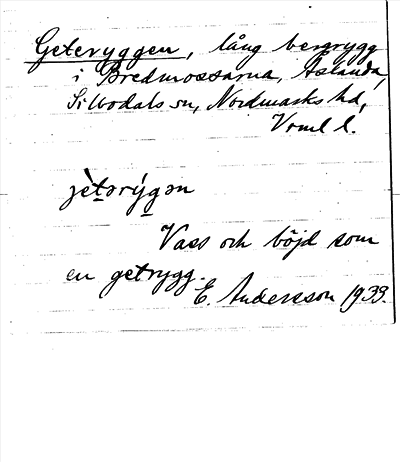 Geteryggen, lång bergrygg
i Bredmossarna, Åslanda,
Sillbodals sn, Nordmarks hd,
Vrml l.
jètərýgən
Vass och böjd som
en getrygg.
E. Andersson 1933.